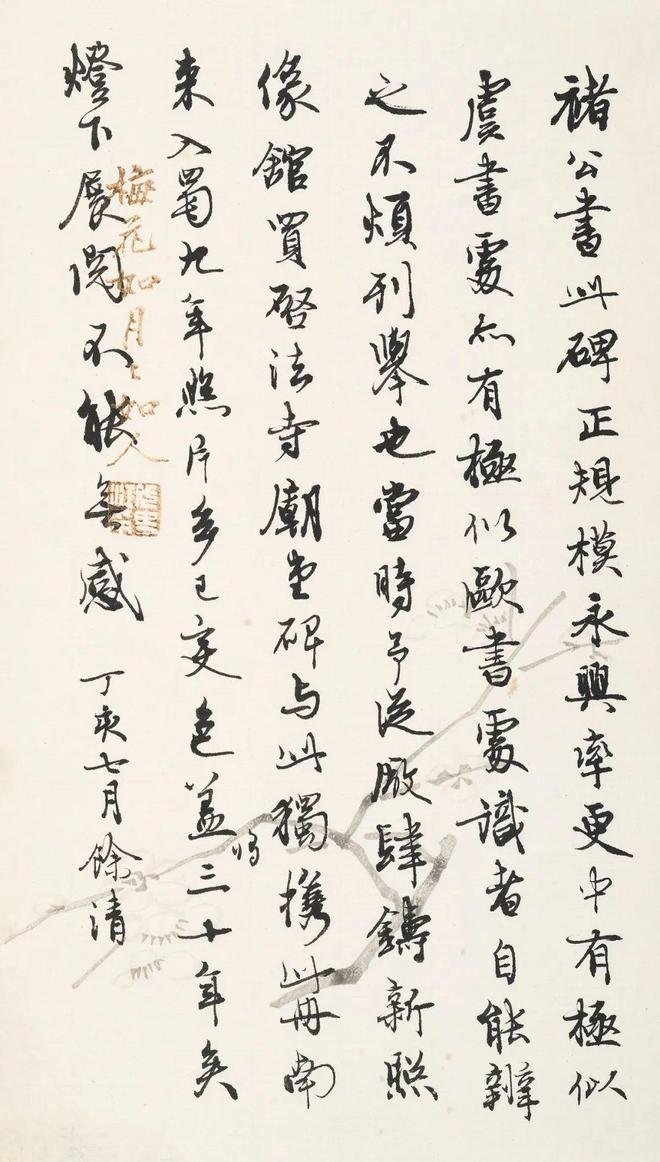 褚公書此碑正規模永興率更中有極似
虞書處亦有極似歐書處識者自能辨
之不煩列舉也當時予從廠肆鑄新照
像館買啓法寺廟堂碑与此獨攜此冊南
來入蜀九年照片多已变色蓋將三十年矣
燈下展閱不能無感 丁亥七月餘清
梅花如月月如人